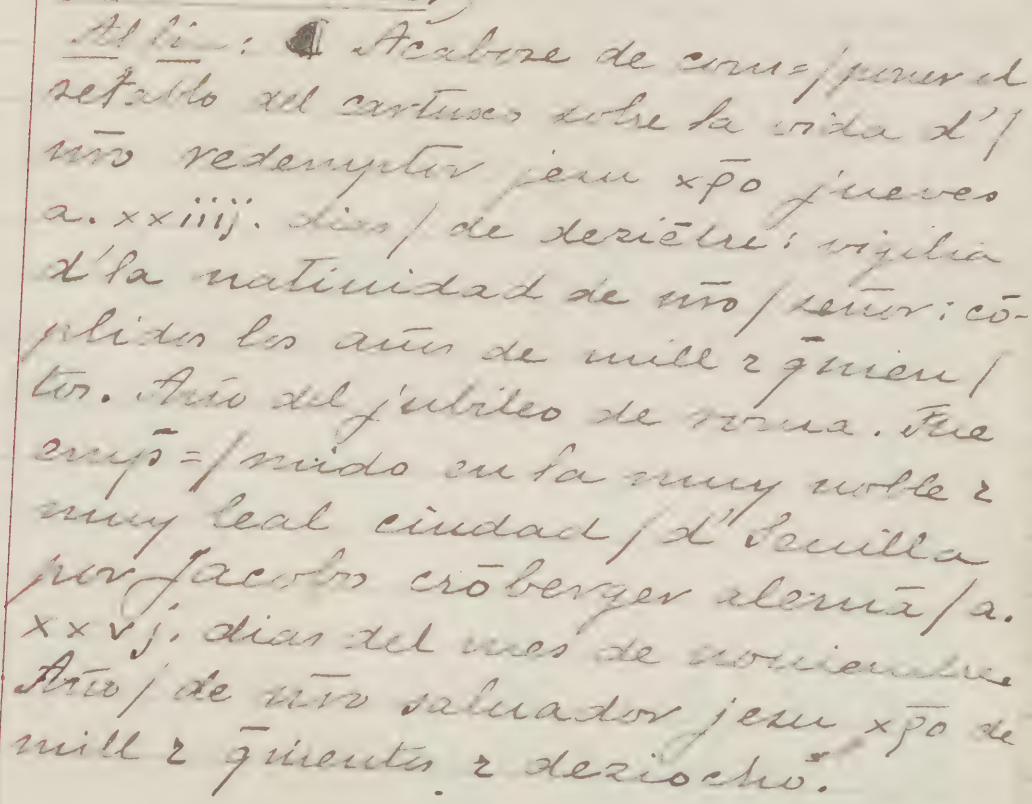 Al fin: ¶ Acabose de com=/poner el
retablo del cartuxo sobre la vida d'/
nr̄o redemptor jesu xp̄o jueves
a. xxiiij. dias/ de deziēbre: vigilia
d'la natiuidad de nr̄o/ señor: cō-
plidos los años de mill ⁊ q̄nien/
tos. Año del jubileo de roma. Fue
emp̄=/mido en la muy noble ⁊
muy leal ciudad/ d' Seuilla
por Jacobo crōberger alemā/ a.
xxvj. dias del mes de nouiembre.
Año/ de nr̄o saluador jesu xp̄o de
mill ⁊ q̄nientos ⁊ deziocho.